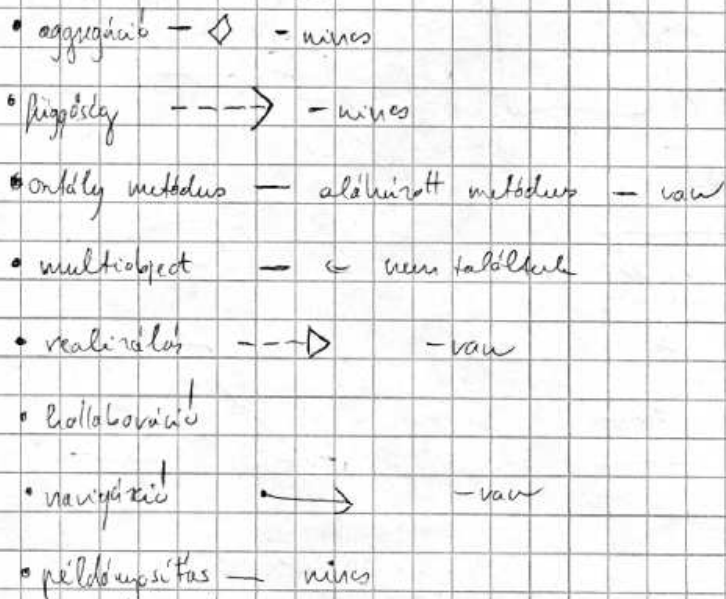 • aggregáció — ◇ - nincs
• függőség ----> - nincs
• osztály metódus — aláhúzott metódus — van
• multiobject — nem találtunk
• realizálás ---▷ - van
• kollaboráció
• navigáció → - van
• példányosítás — nincs